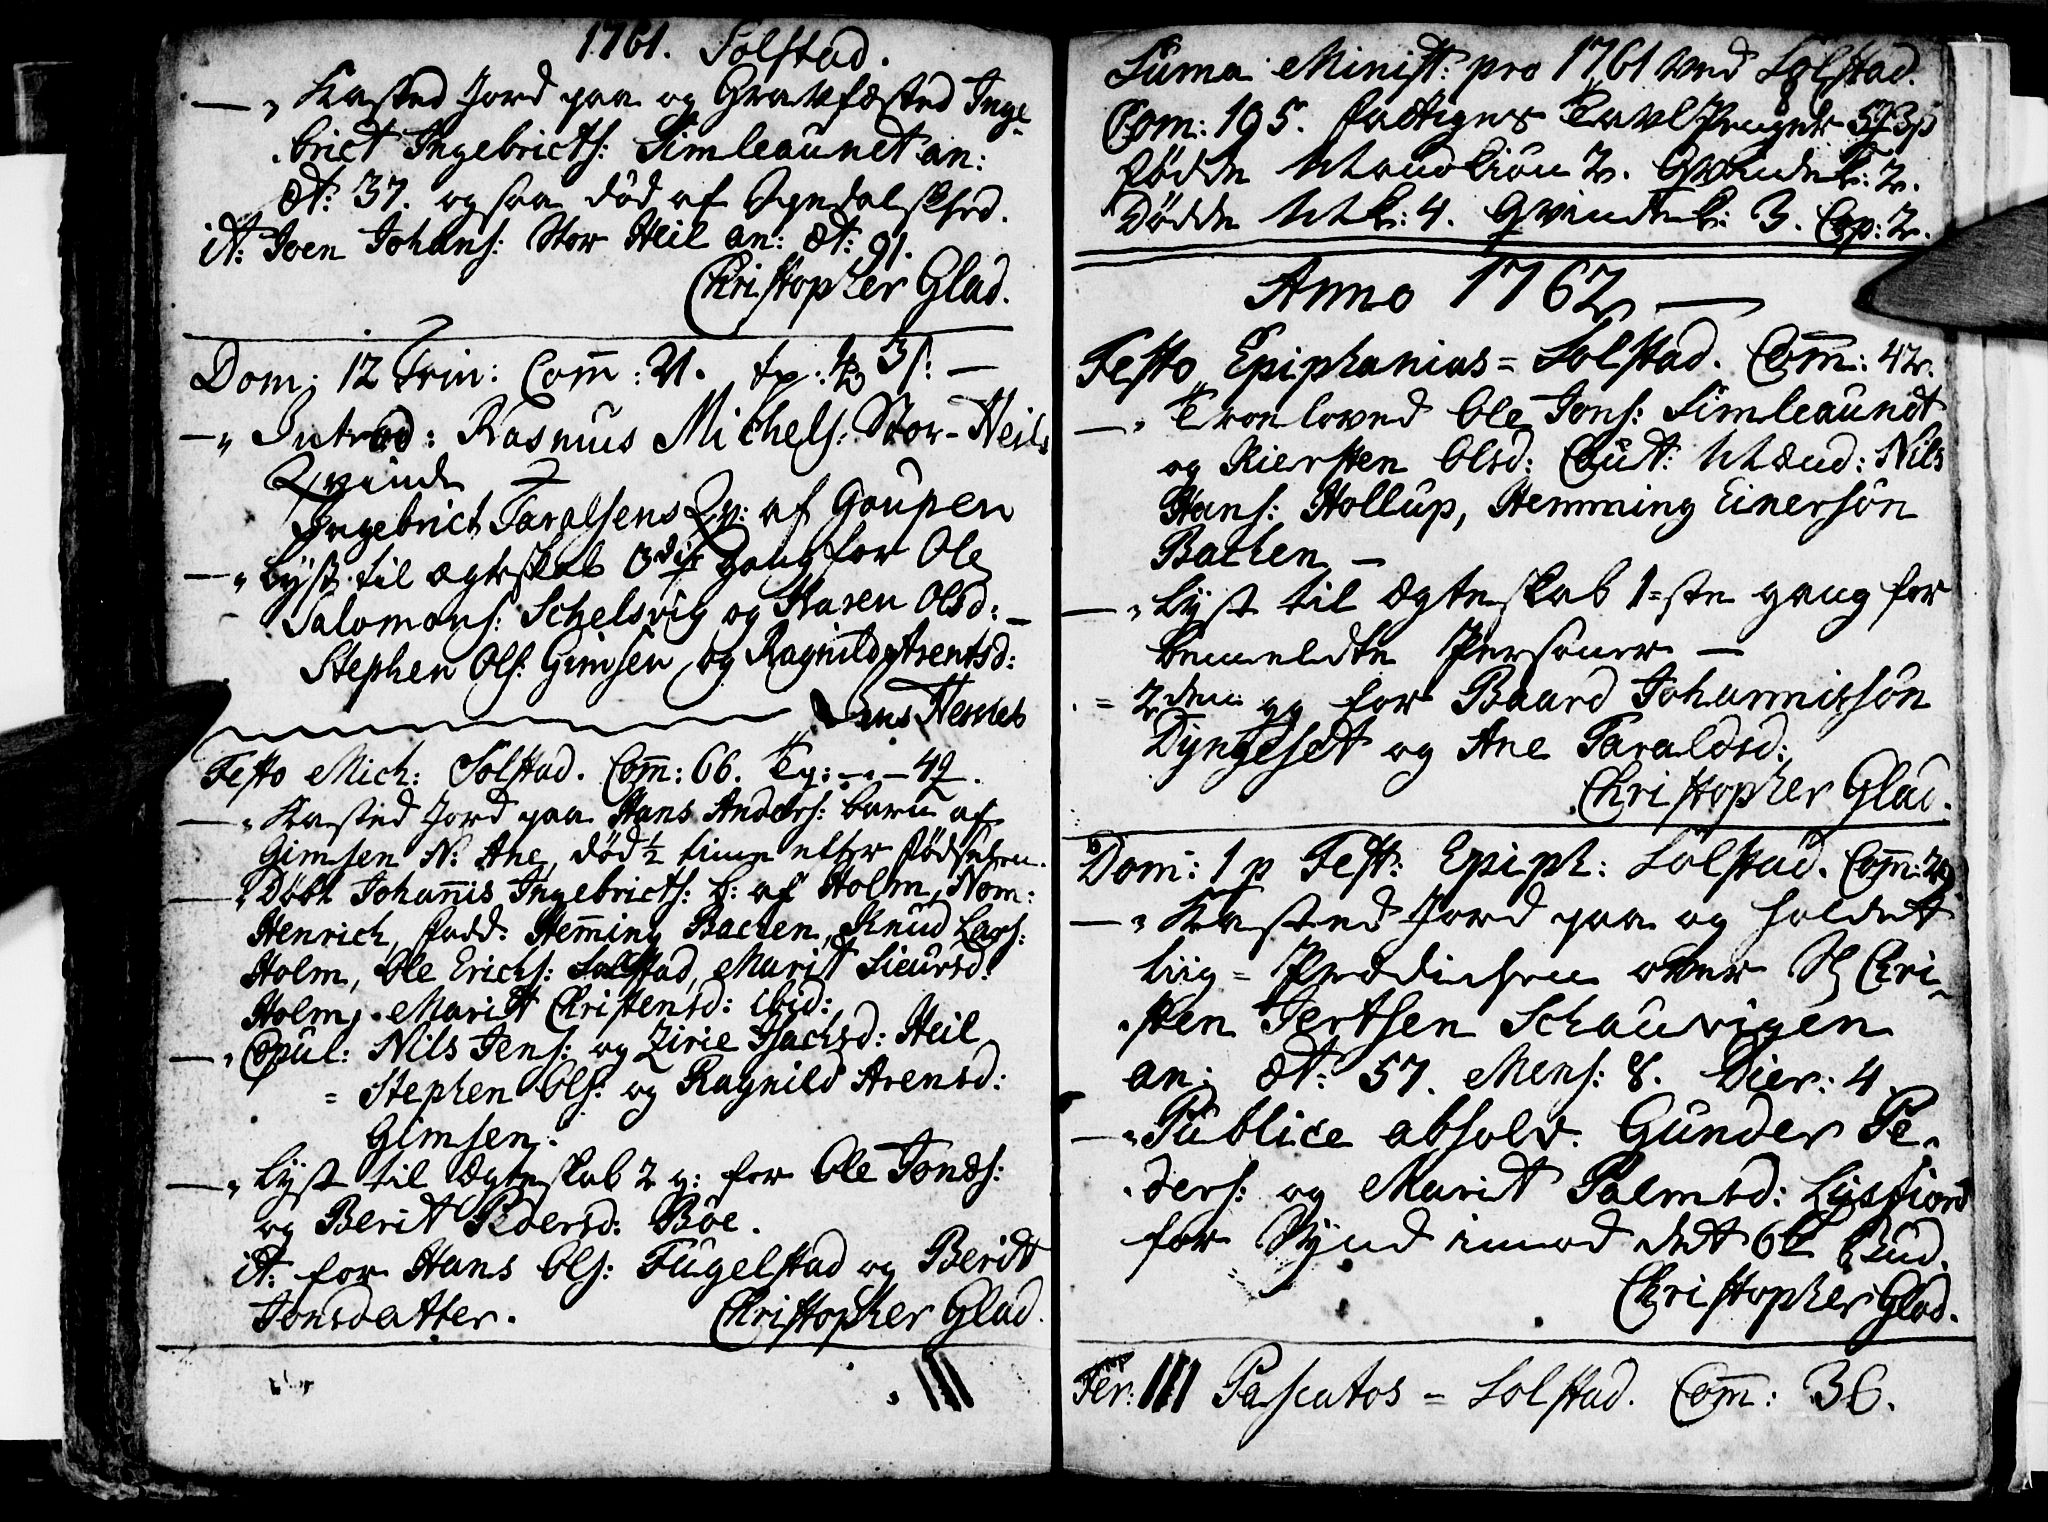 1761. Solstad.
— „ Kasted Jord paa og Gravfæsted Inge-
brict Ingebricts: Simleaunet an:
æt: 37. ogsaa død af
it: Joen Johans: Stor Heil an: æt: 91.
Christopher Glad.
Dom: 12 Trin: Com̄: 21. 3 ſ: —
— „ Introd: Rasmus Michels: Stor-Heils
Qvinde
Ingebrict Taralsens Qv: af Goupen
— „ Lyst til ægteskab 3die gang for Ole
Salomons: Schelsvig og Karen Olsd: —
Stephen Ols: Gimsen og Ragnild Arentsd:
Festo Mich: Solstad. Com̄: 66. Tv: — „ — 42.
— „ Kasted Jord paa Hans Anders: barn af
Gimsen N: Ane, død ½ time efter fødselen.
— „ Døbt Johan̄is Ingebricts: b: af Holm, Nom:
Henrich, fadd: Hem̄ing Bachen, Knud Lars:
Holm, Ole Erichs: Solstad, Marit Siursd:
Holm, Marit Christensd: ibid:
— „ Copul: Nils Jens: og Zirie Isachsd: Heil
= Stephen Ols: og Ragnild Arensd:
Gimsen.
— „ Lyst til Ægteskab 2 g: for Ole Jonæs:
og Berit Pedersd: Bøe.
it: for Hans Ols: Fugelstad og Berit
Jonsdatter. Christopher Glad.
III
Suma Minist: pro 1761 ved Solstad.
Com: 195. fattiges Tavl Penger
fødde Mandkiøn 2. Qvindek: 2.
Dødde Mk: 4. Qvindek: 3. Cop: 2.
Anno 1762 —
Festo Epiphanias = Solstad. Com̄: 42.
— „ Troeloved Ole Jons: Simleaunet
og Kiersten Olsd: Caut: Mænd: Nils
Hans: Hollup, Hemming Einersøn
Bachen —
— „ Lyst til Ægteskab 1=ste gang for
bemeldte Personer —
= 2den gg for Baard Johannissøn
Dyngeset og Ane Taraldsd:
Christopher Glad.
Dom: 1 p Fest: Epiph: Solstad. Com̄: 29
— „ Kasted Jord paa og holdet
Liig=Prædicken over Sl Chri-
sten Jertsen Schauvigen
an: æt: 57. Mens: 8. Dier: 4.
— „ Publice absolv. Gunder Pe-
ders: og Marit Palmsd: Lysfiord
for Synd imod det 6te Bud.
Christopher Glad.
Fer: III Pascatos = Solstad. Com̄: 36.